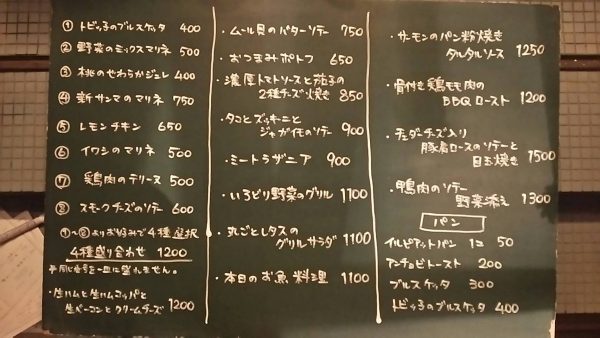 ① トビッ子のブルスケッタ 400
② 野菜のミックスマリネ 500
③ 桃のやわらかジュレ 400
④ 新サンマのマリネ 750
⑤ レモンチキン 650
⑥ イワシのマリネ 500
⑦ 鶏肉のテリーヌ 500
⑧ スモークチーズのソテー 600
①〜⑧よりお好みで4種選択
4種盛り合わせ 1200
※同じ番号を一皿に盛れません。
・生ハムと生ハムコッパと
生ベーコンとクリームチーズ 1200
・ムール貝のバターソテー 750
・おつまみポトフ 650
・濃厚トマトソースと茄子の
2種チーズ焼き 850
・タコとズッキーニと
ジャガイモのソテー 900
・ミートラザニア 900
・いろどり野菜のグリル 1100
・丸ごとレタスの
グリルサラダ 1100
・本日のお魚料理 1100
・サーモンのパン粉焼き
タルタルソース 1250
・骨付き鶏モモ肉の
BBQロースト 1200
・チェダーチーズ入り
豚肩ロースのソテーと
目玉焼き 1500
・鴨肉のソテー
野菜添え 1300
パン
イルピアットパン 1コ 50
アンチョビトースト 200
ブルスケッタ 300
トビッ子のブルスケッタ 400